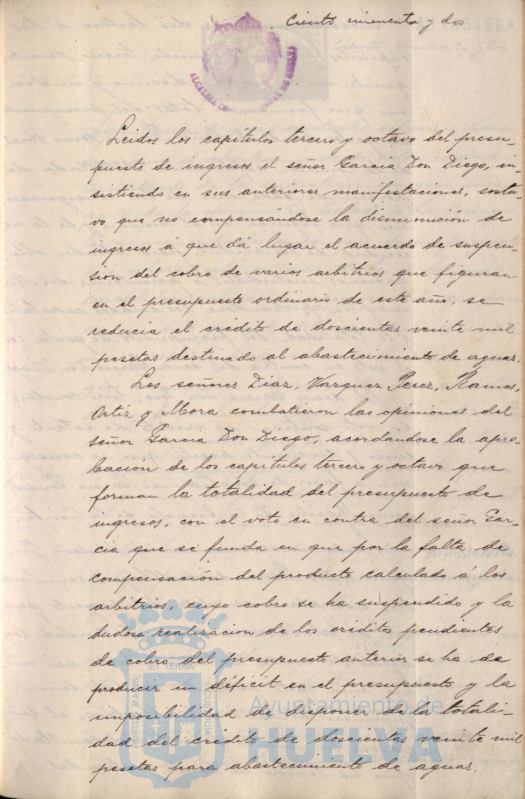 Ciento cincuenta y dos
ALCALDIA
Leidos los capítulos tercero y octavo del presu-
puesto de ingresos el señor Garcia Don Diego, in-
sistiendo en sus anteriores manifestaciones, sostu-
vo que no compensándose la disminución de
ingresos á que dá lugar el acuerdo de suspen-
sion del cobro de varios arbitrios que figuran
en el presupuesto ordinario de este año, se
reducia el crédito de doscientas veinte mil
pesetas destinado al abastecimiento de aguas.
Los señores Diaz, Vazquez Perez, Ramos,
Ortiz y Mora combatieron las opiniones del
señor Garcia Don Diego, acordándose la apro-
bacion de los capítulos tercero y octavo que
forman la totalidad del presupuesto de
ingresos, con el voto en contra del señor Gar-
cia que se funda en que por la falta de
compensación del producto calculado á los
arbitrios, cuyo cobro se ha suspendido y la
dudosa realizacion de los créditos pendientes
de cobro del presupuesto anterior se ha de
producir un déficit en el presupuesto y la
imposibilidad de disponer de la totali-
dad del crédito de doscientas veinte mil
pesetas para abastecimiento de aguas.
Ayuntamiento de
HUELVA